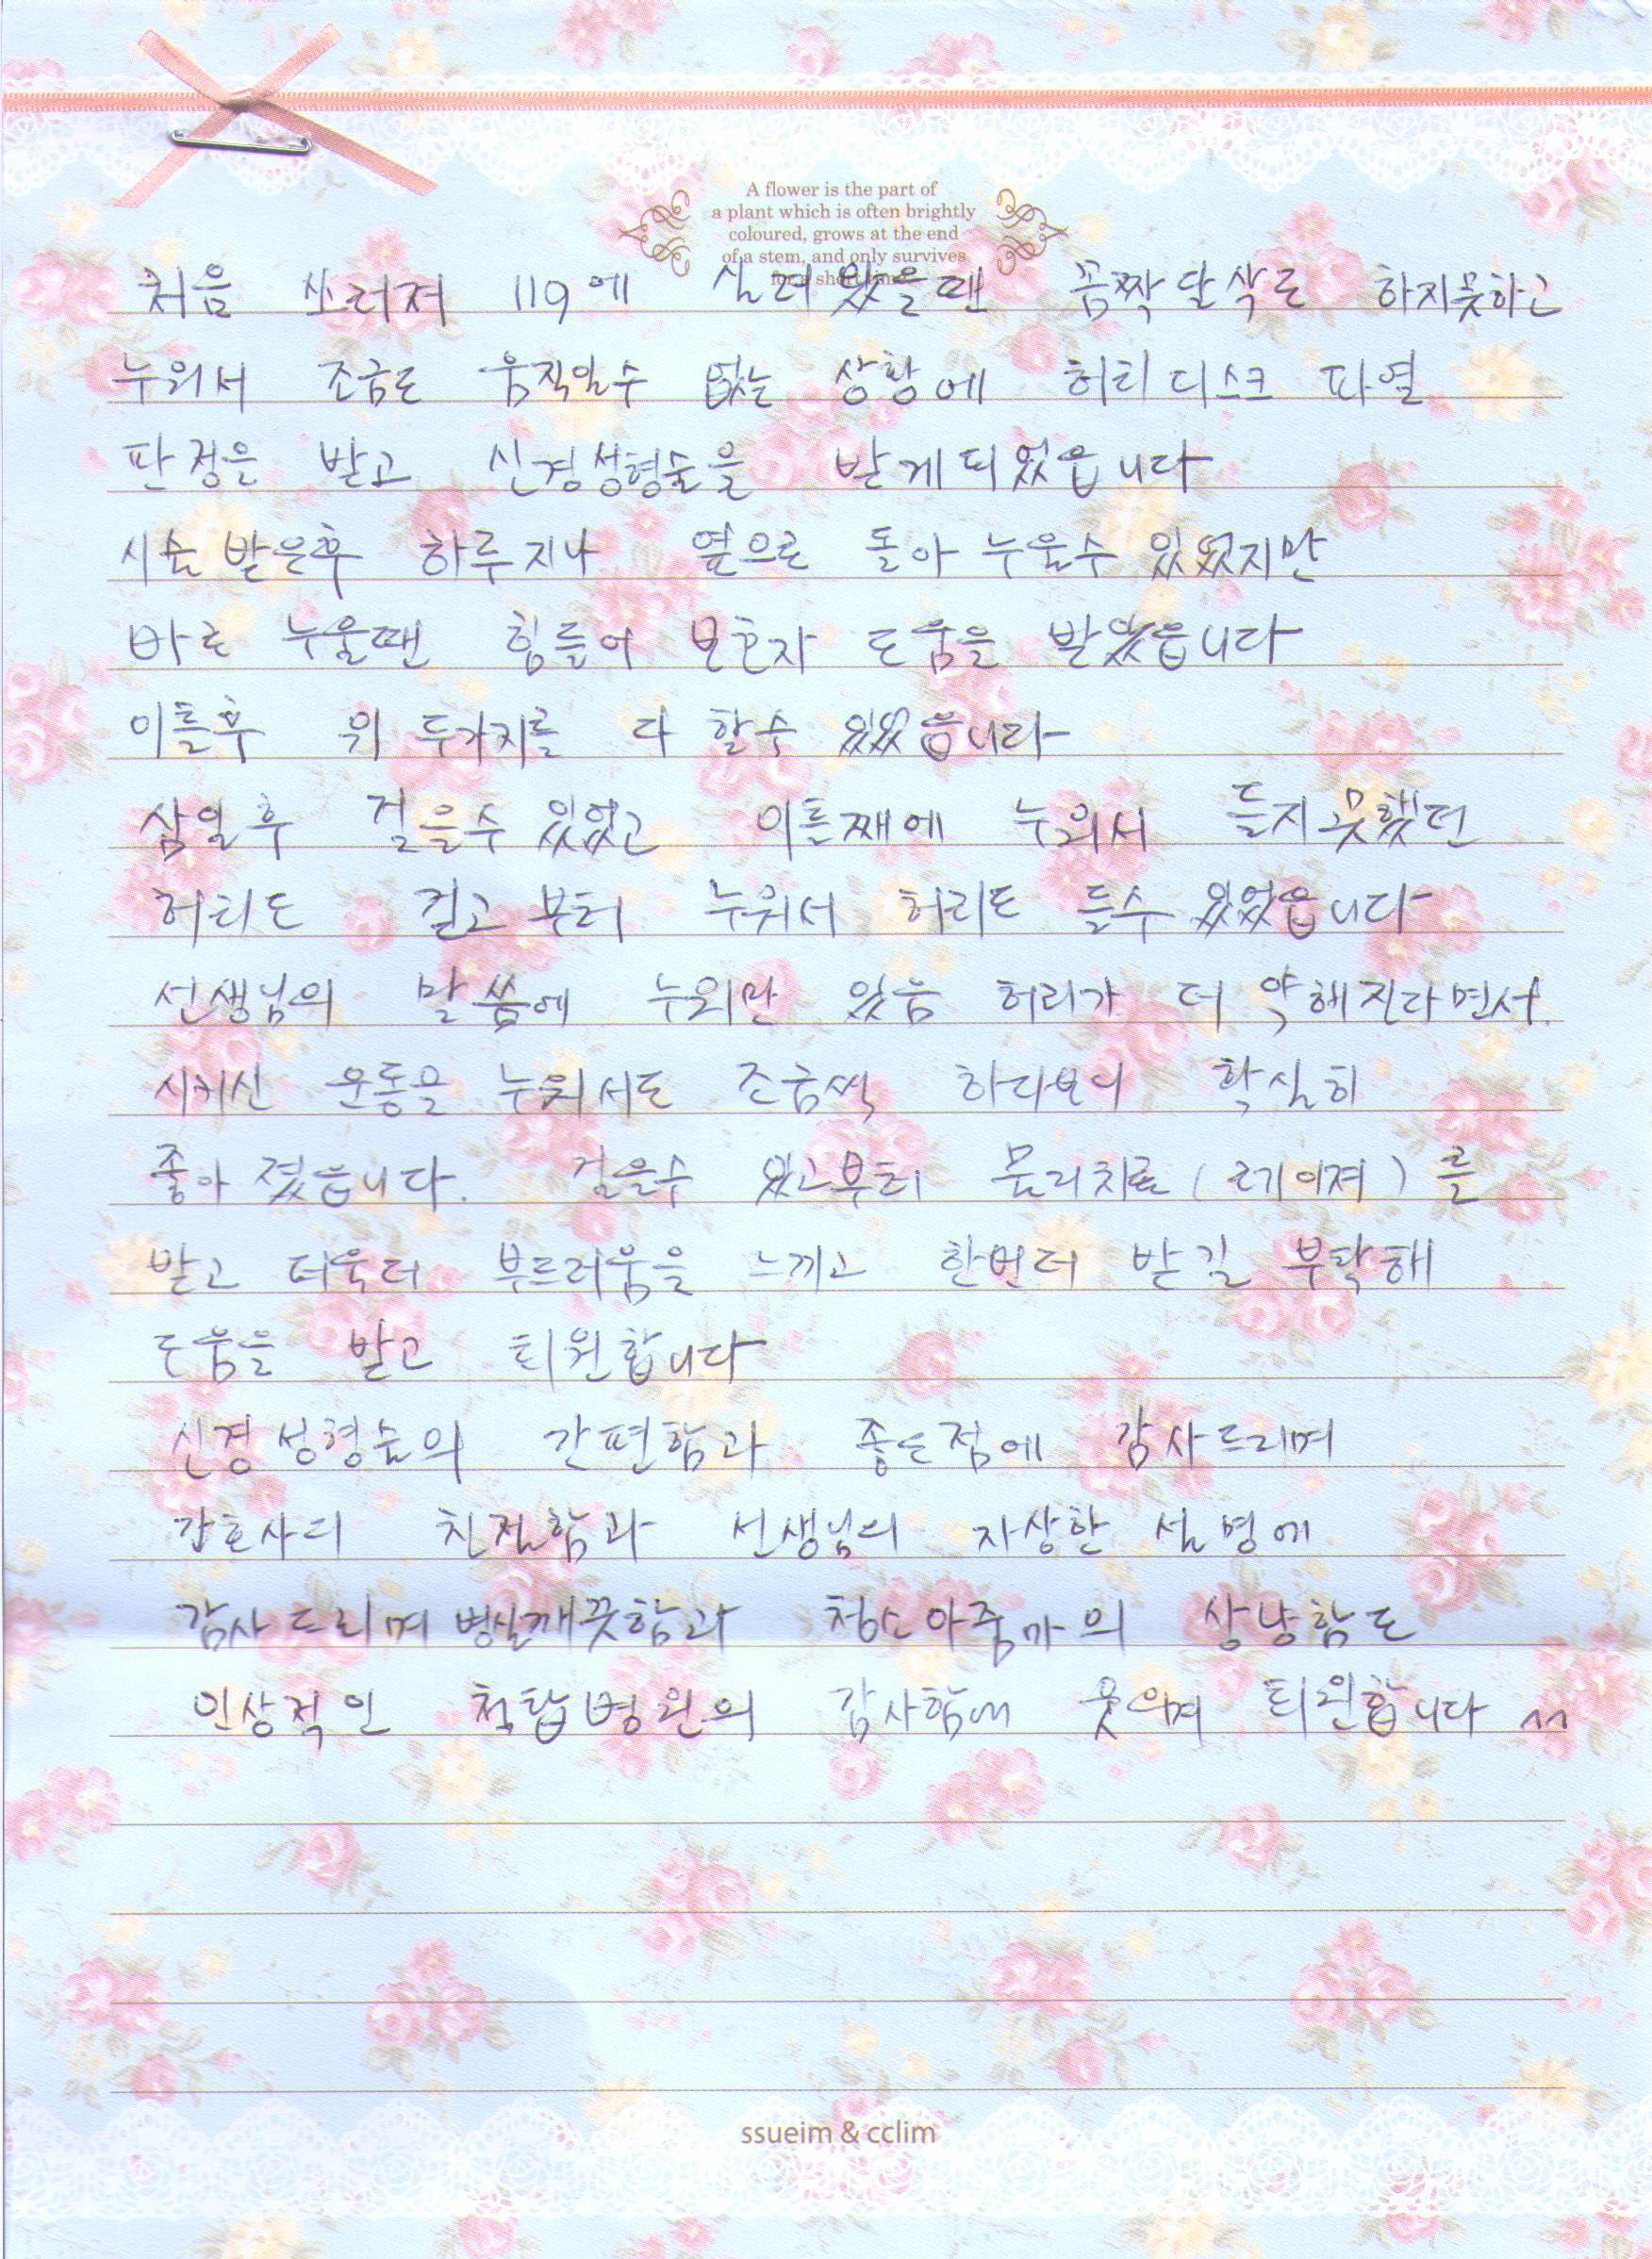 A flower is the part of
a plant which is often brightly
coloured, grows at the end
of a stem, and only survives
처음 쓰러져 119에 실려 왔을땐 꼼짝달싹도 하지못하고
누워서 조금도 움직일수 없는 상황에 허리디스크 파열
판정을 받고 신경성형술을 받게되었읍니다
시술 받은후 하루지나 옆으로 돌아 누울수 있었지만
바로 누울땐 힘들어 보호자 도움을 받았읍니다
이틀후 위 두가지를 다 할수 있었읍니다
삼일후 걸을수 있었고 이틀째에 누워서 들지못했던
허리도 걷고부터 누워서 허리도 들수 있었읍니다
선생님의 말씀에 누워만 있음 허리가 더 약해진다면서.
시키신 운동을 누워서도 조금씩 하다보니 확실히
좋아 졌읍니다. 걸을수 있고부터 물리치료 ( 레이져 ) 를
받고 더욱더 부드러움을 느끼고 한번더 받길 부탁해
도움을 받고 퇴원합니다
신경성형술의 간편함과 좋은점에 감사드리며
간호사의 친절함과 선생님의 자상한 설명에
감사드리며 병실깨끗함과 청소아줌마의 상냥함도
인상적인 척탑병원의 감사함에 웃으며 퇴원합니다 ^^
ssueim & cclim